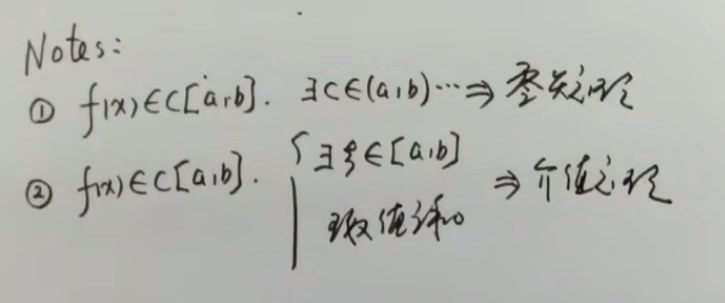 Notes:
① f(x)∈C[a,b]. ∃c∈(a,b)…⇒ 零点定理
② f(x)∈C[a,b]. { ∃ξ∈[a,b] ⇒ 介值定理
函数值之和